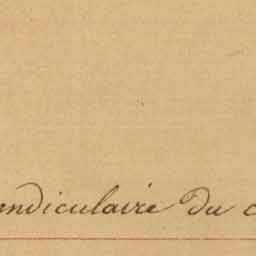 ndiculaire du c